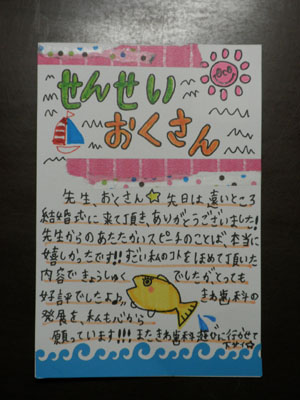 せんせい
おくさん
先生、おくさん☆先日は遠いところ
結婚式に来て頂き、ありがとうございました!
先生からのあたたかいスピーチのことば、本当に
嬉しかったです!!すごい私のコトをほめて頂いた
内容できょうしゅくでしたが、とっても
好評でしたよ♪きわ歯科の
発展を、私も心から
願っています!!!またきわ歯科遊びに行かせて
下サイ